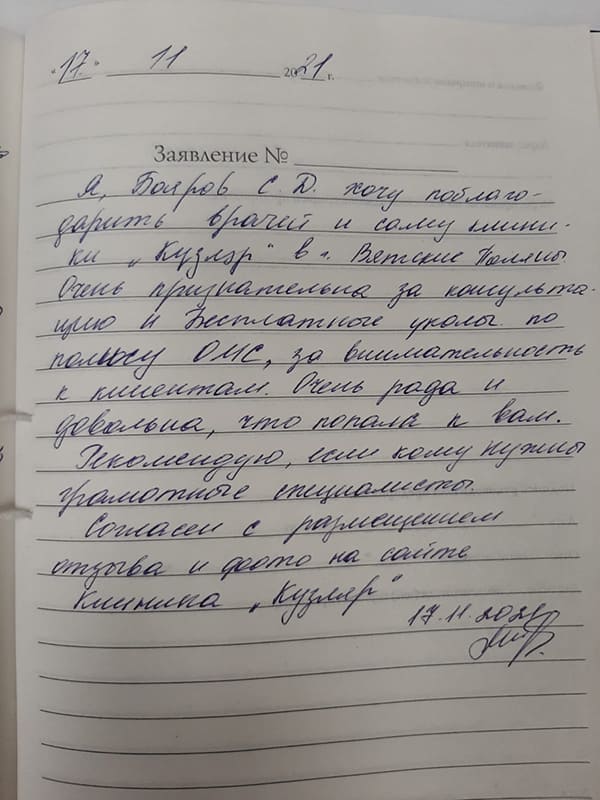 "17." 11 2021 г.
Заявление №
Я, Бояров С. Д. хочу поблаго-
дарить врачей и саму клини-
ки „Кузляр" в г. Вятские Поляны.
Очень признательна за консульта-
цию и Бесплатные уколы по
полюсу ОМС, за внимательность
к клиентам. Очень рада и
довольна, что попала к вам.
Рекомендую, если кому нужны
грамотные специалисты.
Согласен с размещением
отзыва и фото на сайте
Клиника „Кузляр"
17.11.2021